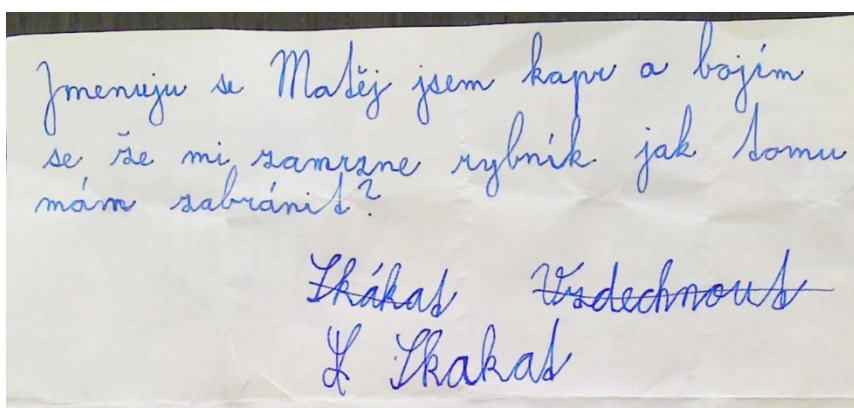 Jmenuju se Matěj jsem kapr a bojím
se že mi zamrzne rybník jak tomu
mám zabránit?
Skákat Vzdechnout
Skakat